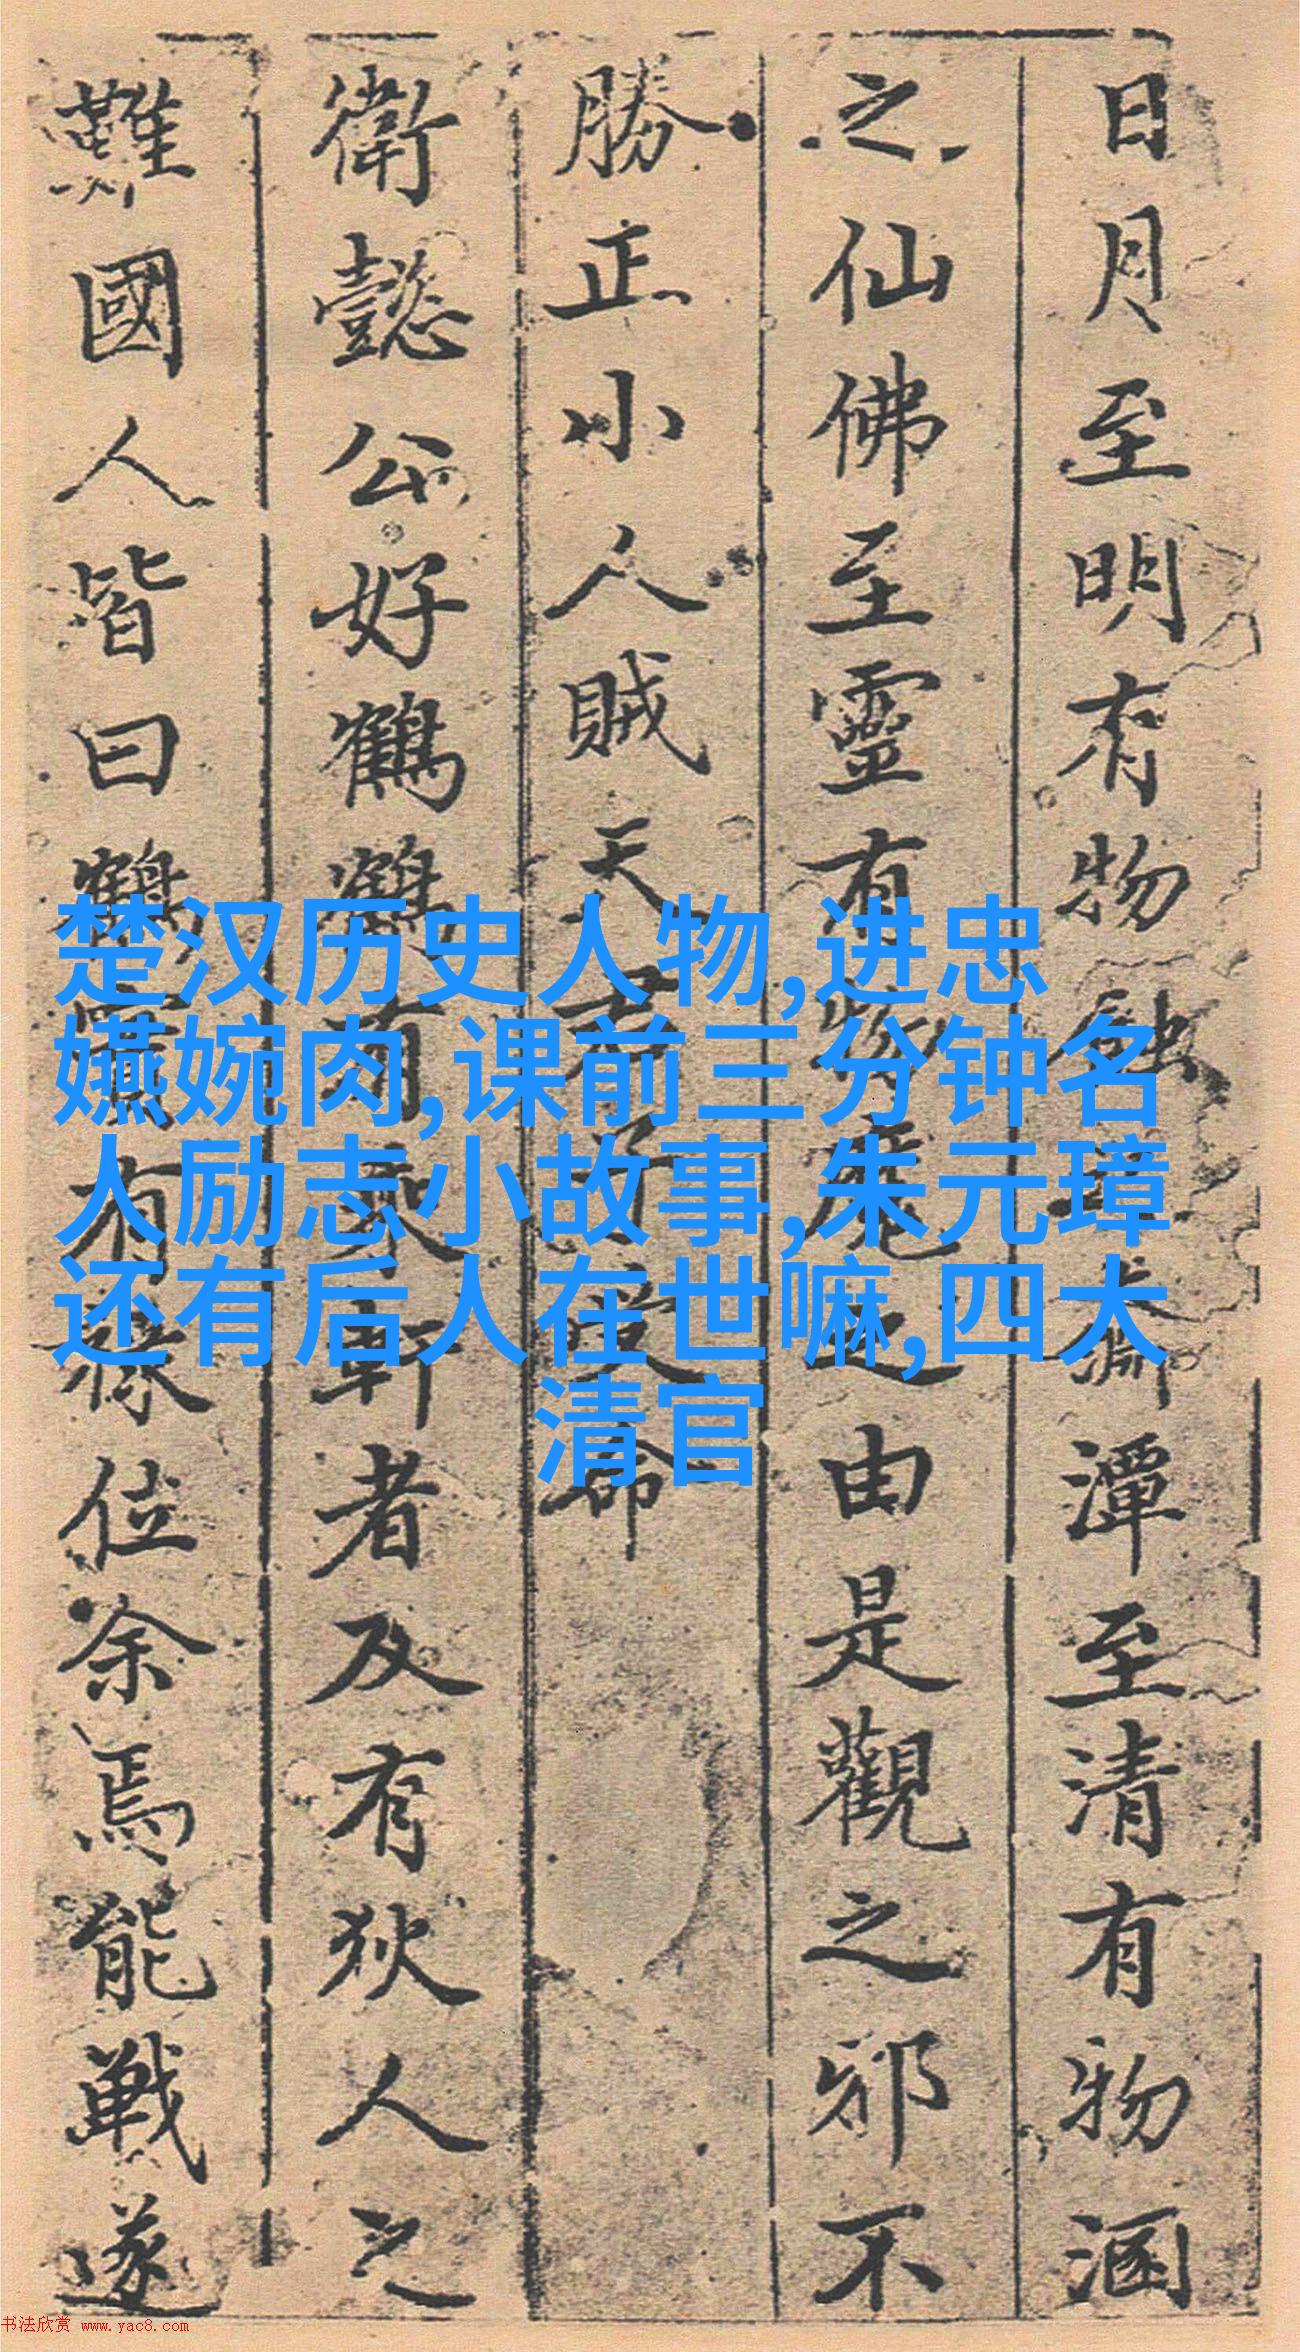 日月至明有物蝕淵潭至清有物涵
之仙佛至靈有物魔之由是觀之邪不
勝正小人賊天君子受命
衛懿公好鶴鶴有乘軒者及有狄人之
難國人皆曰鶴實有祿位余焉能戰遂
楚汉历史人物,进忠
嬿婉肉,课前三分钟名
人励志小故事,朱元璋
还有后人在世嘛,四大
清官
书法欣赏 www.yac8.com